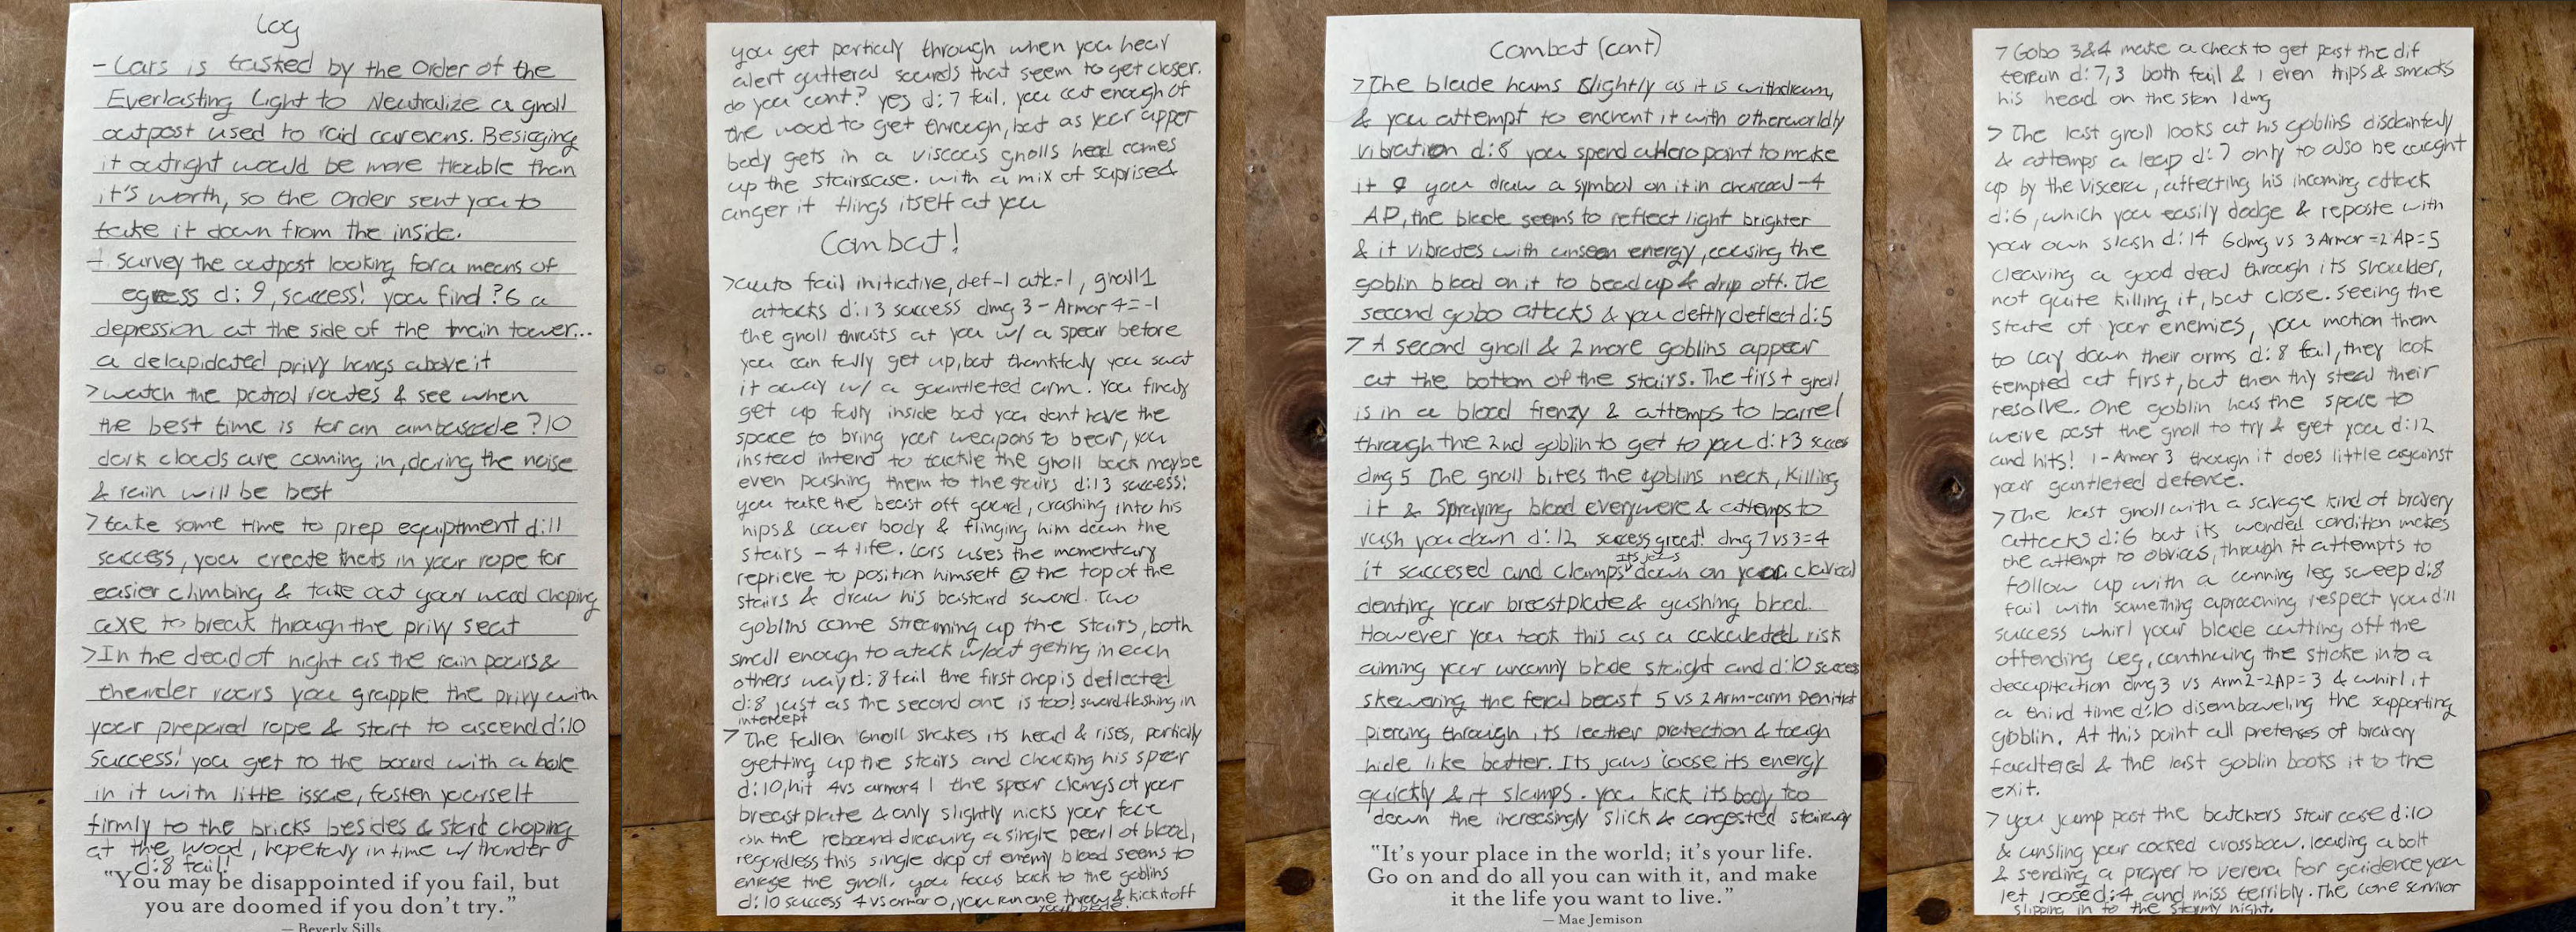 Log
- Lars is tasked by the Order of the
Everlasting Light to Neutralize a gnoll
outpost used to raid carevens. Besieging
it outright would be more trouble than
it's worth, so the Order sent you to
take it down from the inside.
- Survey the outpost looking for a means of
egress d: 9, success! you find ?6 a
depression at the side of the main tower...
a delapidated privy hangs above it
>watch the patrol routes & see when
the best time is for an ambuscade ?10
dark clouds are coming in, during the noise
& rain will be best
>take some time to prep equiptment d:11
success, you create knots in your rope for
easier climbing & take out your wood choping
axe to break through the privy seat
>In the dead of night as the rain pours &
thunder roars you grapple the privy with
your prepared rope & start to ascend d:10
Success! you get to the board with a hole
in it with little issue, fasten yourself
firmly to the bricks besides & start choping
at the wood, hopefuly in time w/ thunder
d:8 fail!
"You may be disappointed if you fail, but
you are doomed if you don't try."
— Beverly Sills
you get particaly through when you hear
alert gutteral sounds that seem to get closer.
do you cont? yes d:7 fail. you cut enough of
the wood to get through, but as your upper
body gets in a viscous gnolls head comes
up the staircase. with a mix of suprised
anger it flings itself at you
Combat!
>auto fail initiative, def-1 atk-1, gnoll1
attacks d:13 success dmg 3 - Armor 4=-1
the gnoll thrusts at you w/ a spear before
you can fully get up, but thankfuly you swat
it away w/ a gauntleted arm. You finaly
get up fully inside but you dont have the
space to bring your weapons to bear, you
instead intend to tackle the gnoll back maybe
even pushing them to the stairs d:13 success!
you take the beast off gaurd, crashing into his
hips & lower body & flinging him down the
stairs - 4 life. Lars uses the momentary
reprieve to position himself @ the top of the
stairs & draw his bastard sword. Two
goblins come streaming up the stairs, both
small enough to atack w/out geting in each
others way d: 8 fail the first chop is deflected
d:8 just as the second one is too! sword flashing in
intercept
> The fallen Gnoll shakes its head & rises, partialy
getting up the stairs and chucking his spear
d:10, hit 4vs armor4 | the spear clangs of your
breastplate & only slightly nicks your face
on the rebound drawing a single pearl of blood,
regardless this single drop of enemy blood seems to
enrage the gnoll. you focus back to the goblins
d:10 success 4 vs armor 0, you run one through & kick it off
your blade.
Combat (cont)
>The blade hums slightly as it is withdrawn,
& you attempt to enchant it with otherworldly
vibration d:8 you spend a Hero point to make
it 9 you draw a symbol on it in charcoal -4
AP, the blade seems to reflect light brighter
& it vibrates with unseen energy, causing the
goblin blood on it to bead up & drip off. The
second gobo attacks & you deftly deflect d:5
> A second gnoll & 2 more goblins appear
at the bottom of the stairs. The first gnoll
is in a blood frenzy & attemps to barrel
through the 2nd goblin to get to you d:13 succes
dmg 5 The gnoll bites the goblins neck, killing
it & Spraying blood everywere & attemps to
rush you down d:12 success great! dmg 7 vs 3=4
it succesed and clamps its jaws down on your clavical
denting your breastplate & gushing blood.
However you took this as a calculated risk
aiming your uncanny blade straight and d:10 success
skewering the feral beast 5 vs 2 Arm-arm
piercing through its leather protection & tough
hide like butter. Its jaws loose its energy
quickly & it slumps. you kick its body too
down the increasingly slick & congested stairway
"It's your place in the world; it's your life.
Go on and do all you can with it, and make
it the life you want to live."
— Mae Jemison
> Gobo 3&4 make a check to get past the dif
terrain d:7,3 both fail & 1 even trips & smacks
his head on the ston 1dmg
> The last gnoll looks at his goblins disdainfuly
& attemps a leap d:7 only to also be caught
up by the viscera, affecting his incoming attack
d:6, which you easily dodge & reposte with
your own slash d:14 6dmg vs 3 Armor -2 AP=5
cleaving a good deal through its shoulder,
not quite killing it, but close. Seeing the
state of your enemies, you motion them
to lay down their arms d:8 fail, they look
tempted at first, but then thy steal their
resolve. One goblin has the space to
weive past the gnoll to try & get you d:12
and hits! 1-Armor 3 though it does little against
your gantleted defence.
> The last gnoll with a savage kind of bravery
attacks d:6 but its wonded condition makes
the attempt to obvious, through it attempts to
follow up with a cunning leg sweep d:8
fail with something aproaching respect you d:11
success whirl your blade cutting off the
offending leg, continuing the stroke into a
decapitation dmg 3 vs Arm2-2AP=3 & whirl it
a third time d:10 disemboweling the supporting
goblin. At this point all pretenses of bravery
faultered & the last goblin books it to the
exit.
> you jump past the butchers stair case d:10
& unsling your cocked crossbow. loading a bolt
& sending a prayer to verena for guidence you
let loose d:4 and miss terribly. The lone survivor
slipping in to the stormy night.